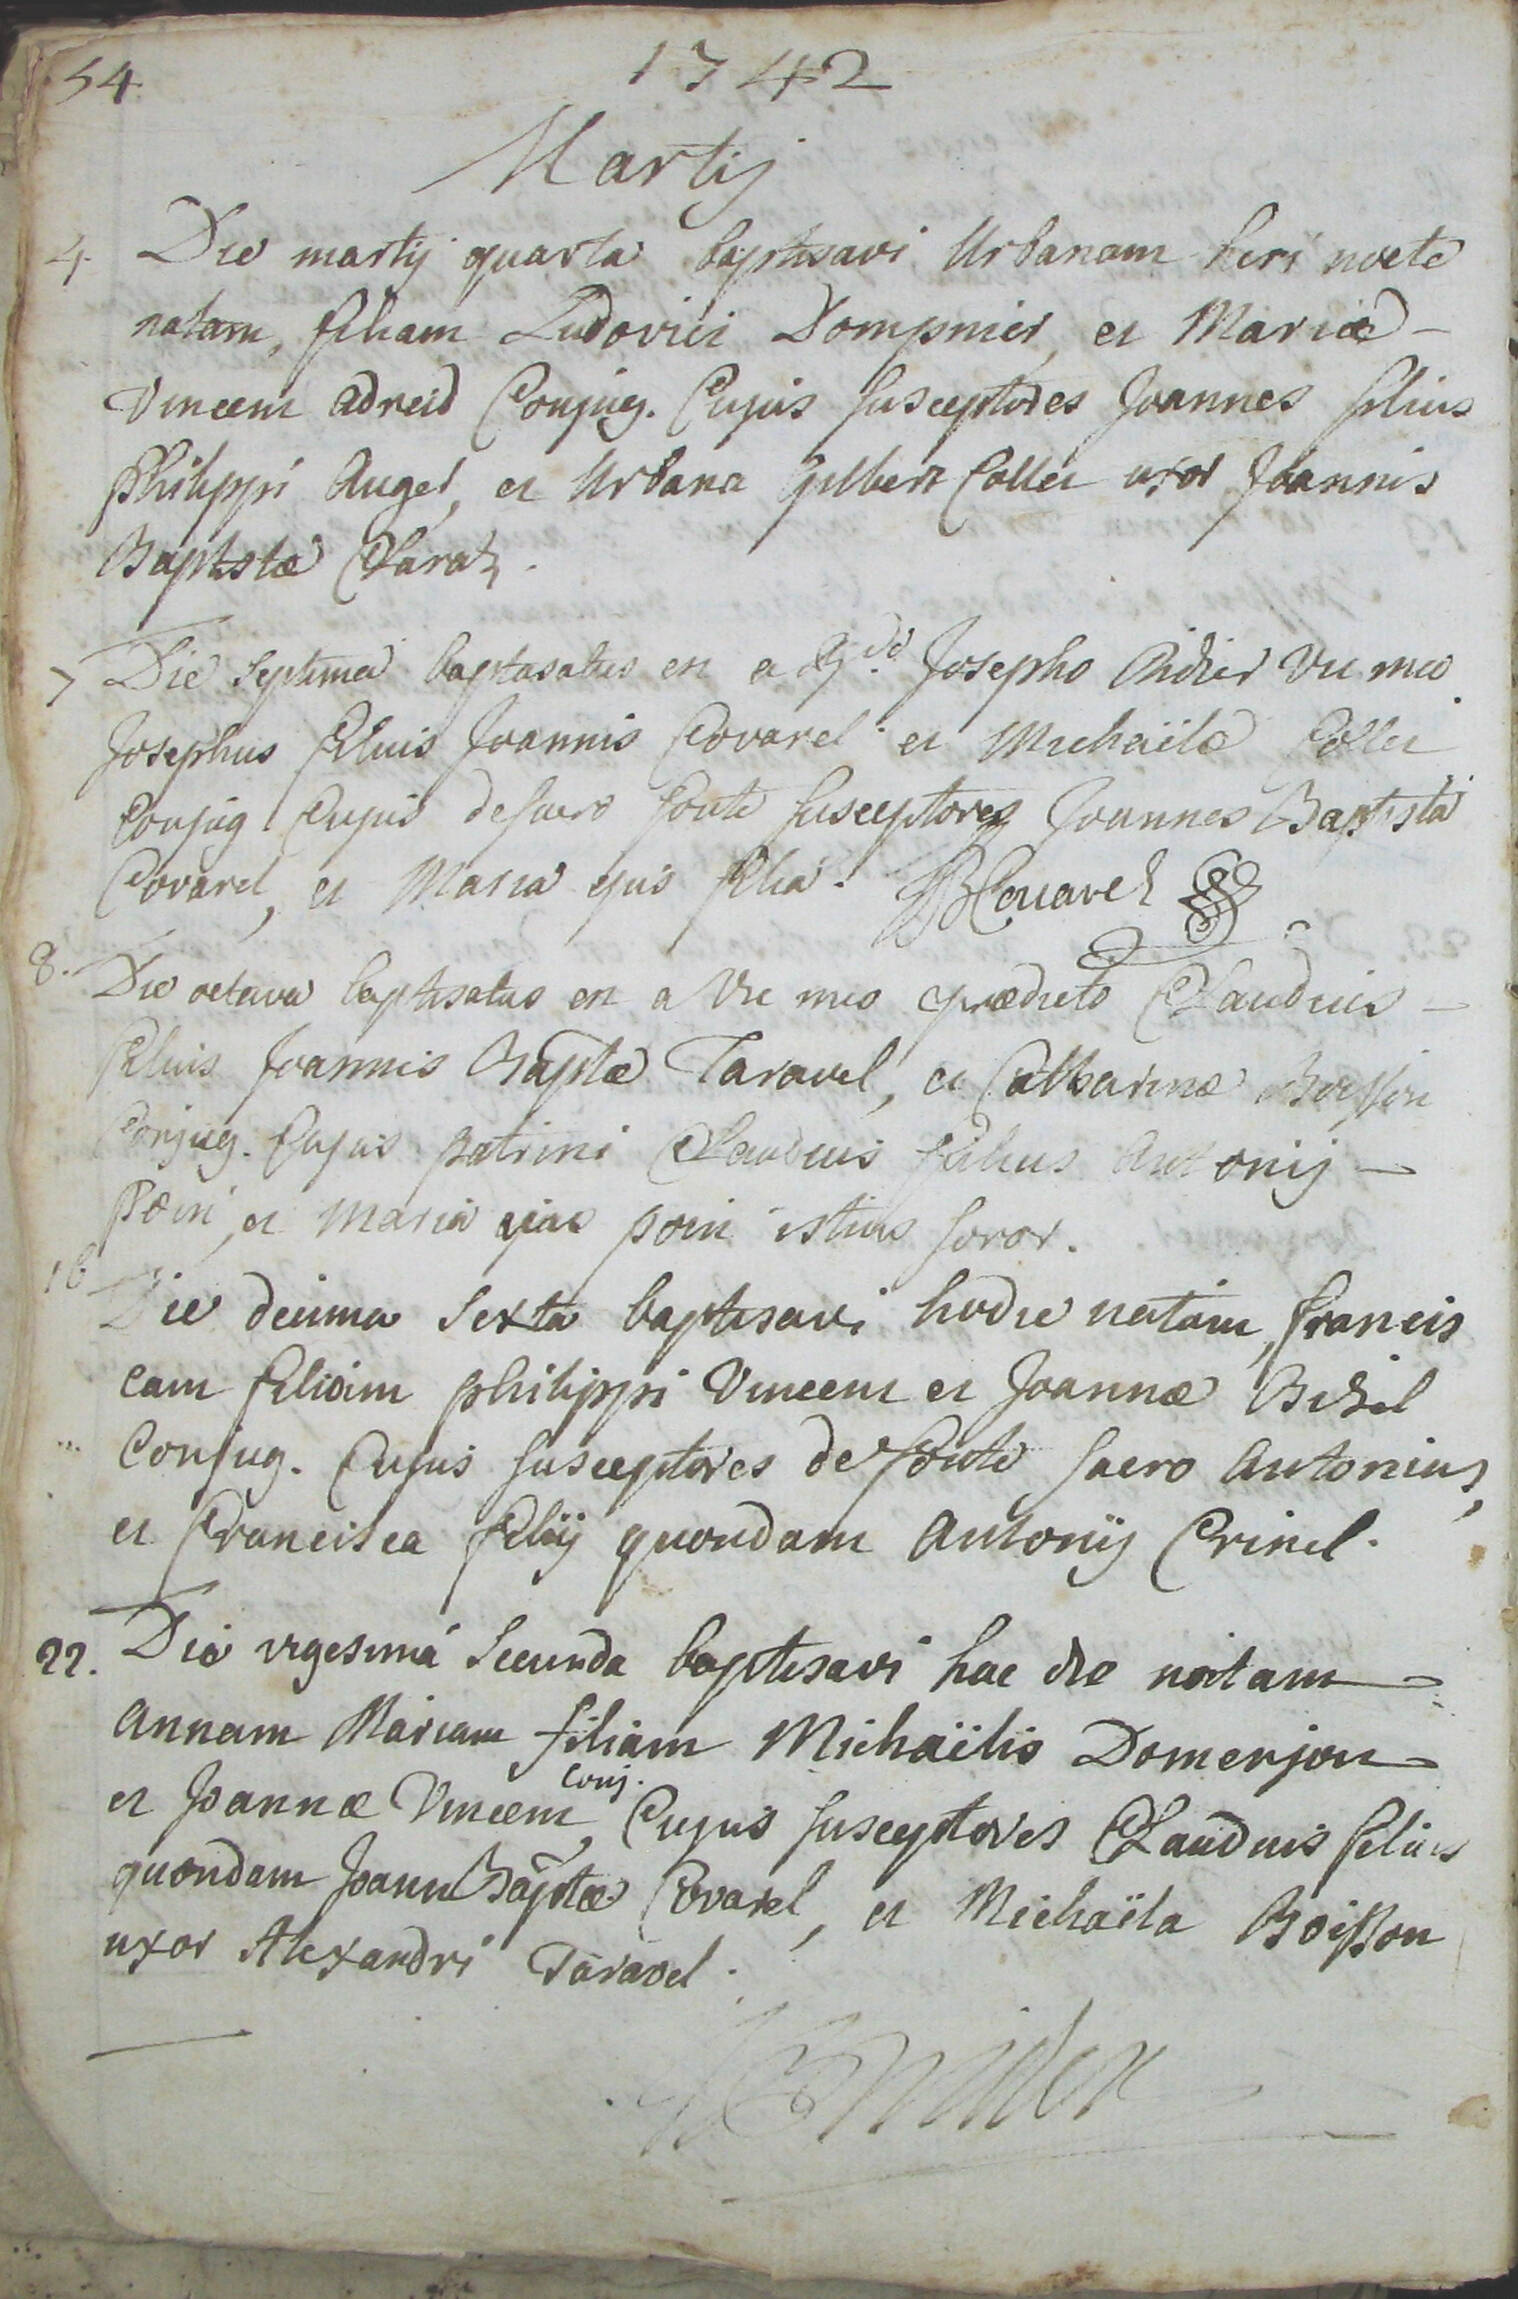 54.
1742
Martij
4. Die martij quarta baptisavi Urbanam heri nocte
natam, filiam Ludovici Dompnier, et Mariæ -
Vincent adreid Conjug. Cujus susceptores Joannes filius
Philippi Auger, et Urbana Gilbert Collet uxor Joannis
Baptistæ Claraz.
7 Die septima baptisatus est a Rdo. Josepho Didier Vic meo
Josephus filius Joannis Covarel et Michaëlæ Collet
Conjug Cujus de sacro fonte susceptores Joannes Baptista
Covarel, et Maria ejus filia. JBCouarel
8. Die octava baptisatus est a Vic meo prædicto Claudius -
filius Joannis Baptæ Taravel, et Catharinæ Boisson
Conjug. Cujus patrini Claudius filius Antonij -
et Maria ejus istius soror.
16 Die decima sexta baptisavi hodie natam, francis
cam filiam philippi Vincent et Joannæ
Conjug. Cujus susceptores de fonte sacro Antonius,
et Francisca filij quondam Antonij Crinel.
22. Die vigesimá secunda baptisavi hac die natam -
Annam Mariam filiam Michaëlis Domenjon -
et Joannæ Vincent conj., Cujus susceptores Claudius filius
quondam Joann Baptæ Covarel, et Michaëla Boisson
uxor Alexandri Taravel.